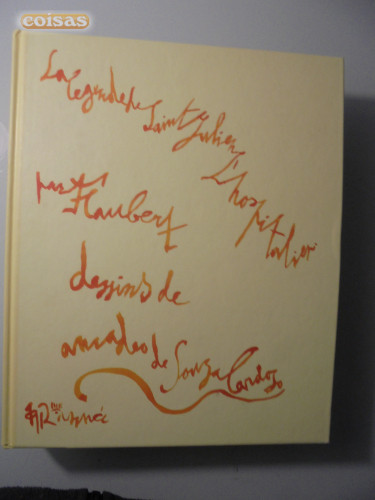 coisas
La légende de Saint Julien L'hospitalier
par Flaubert
dessins de
amadeo de Souza Cardoso